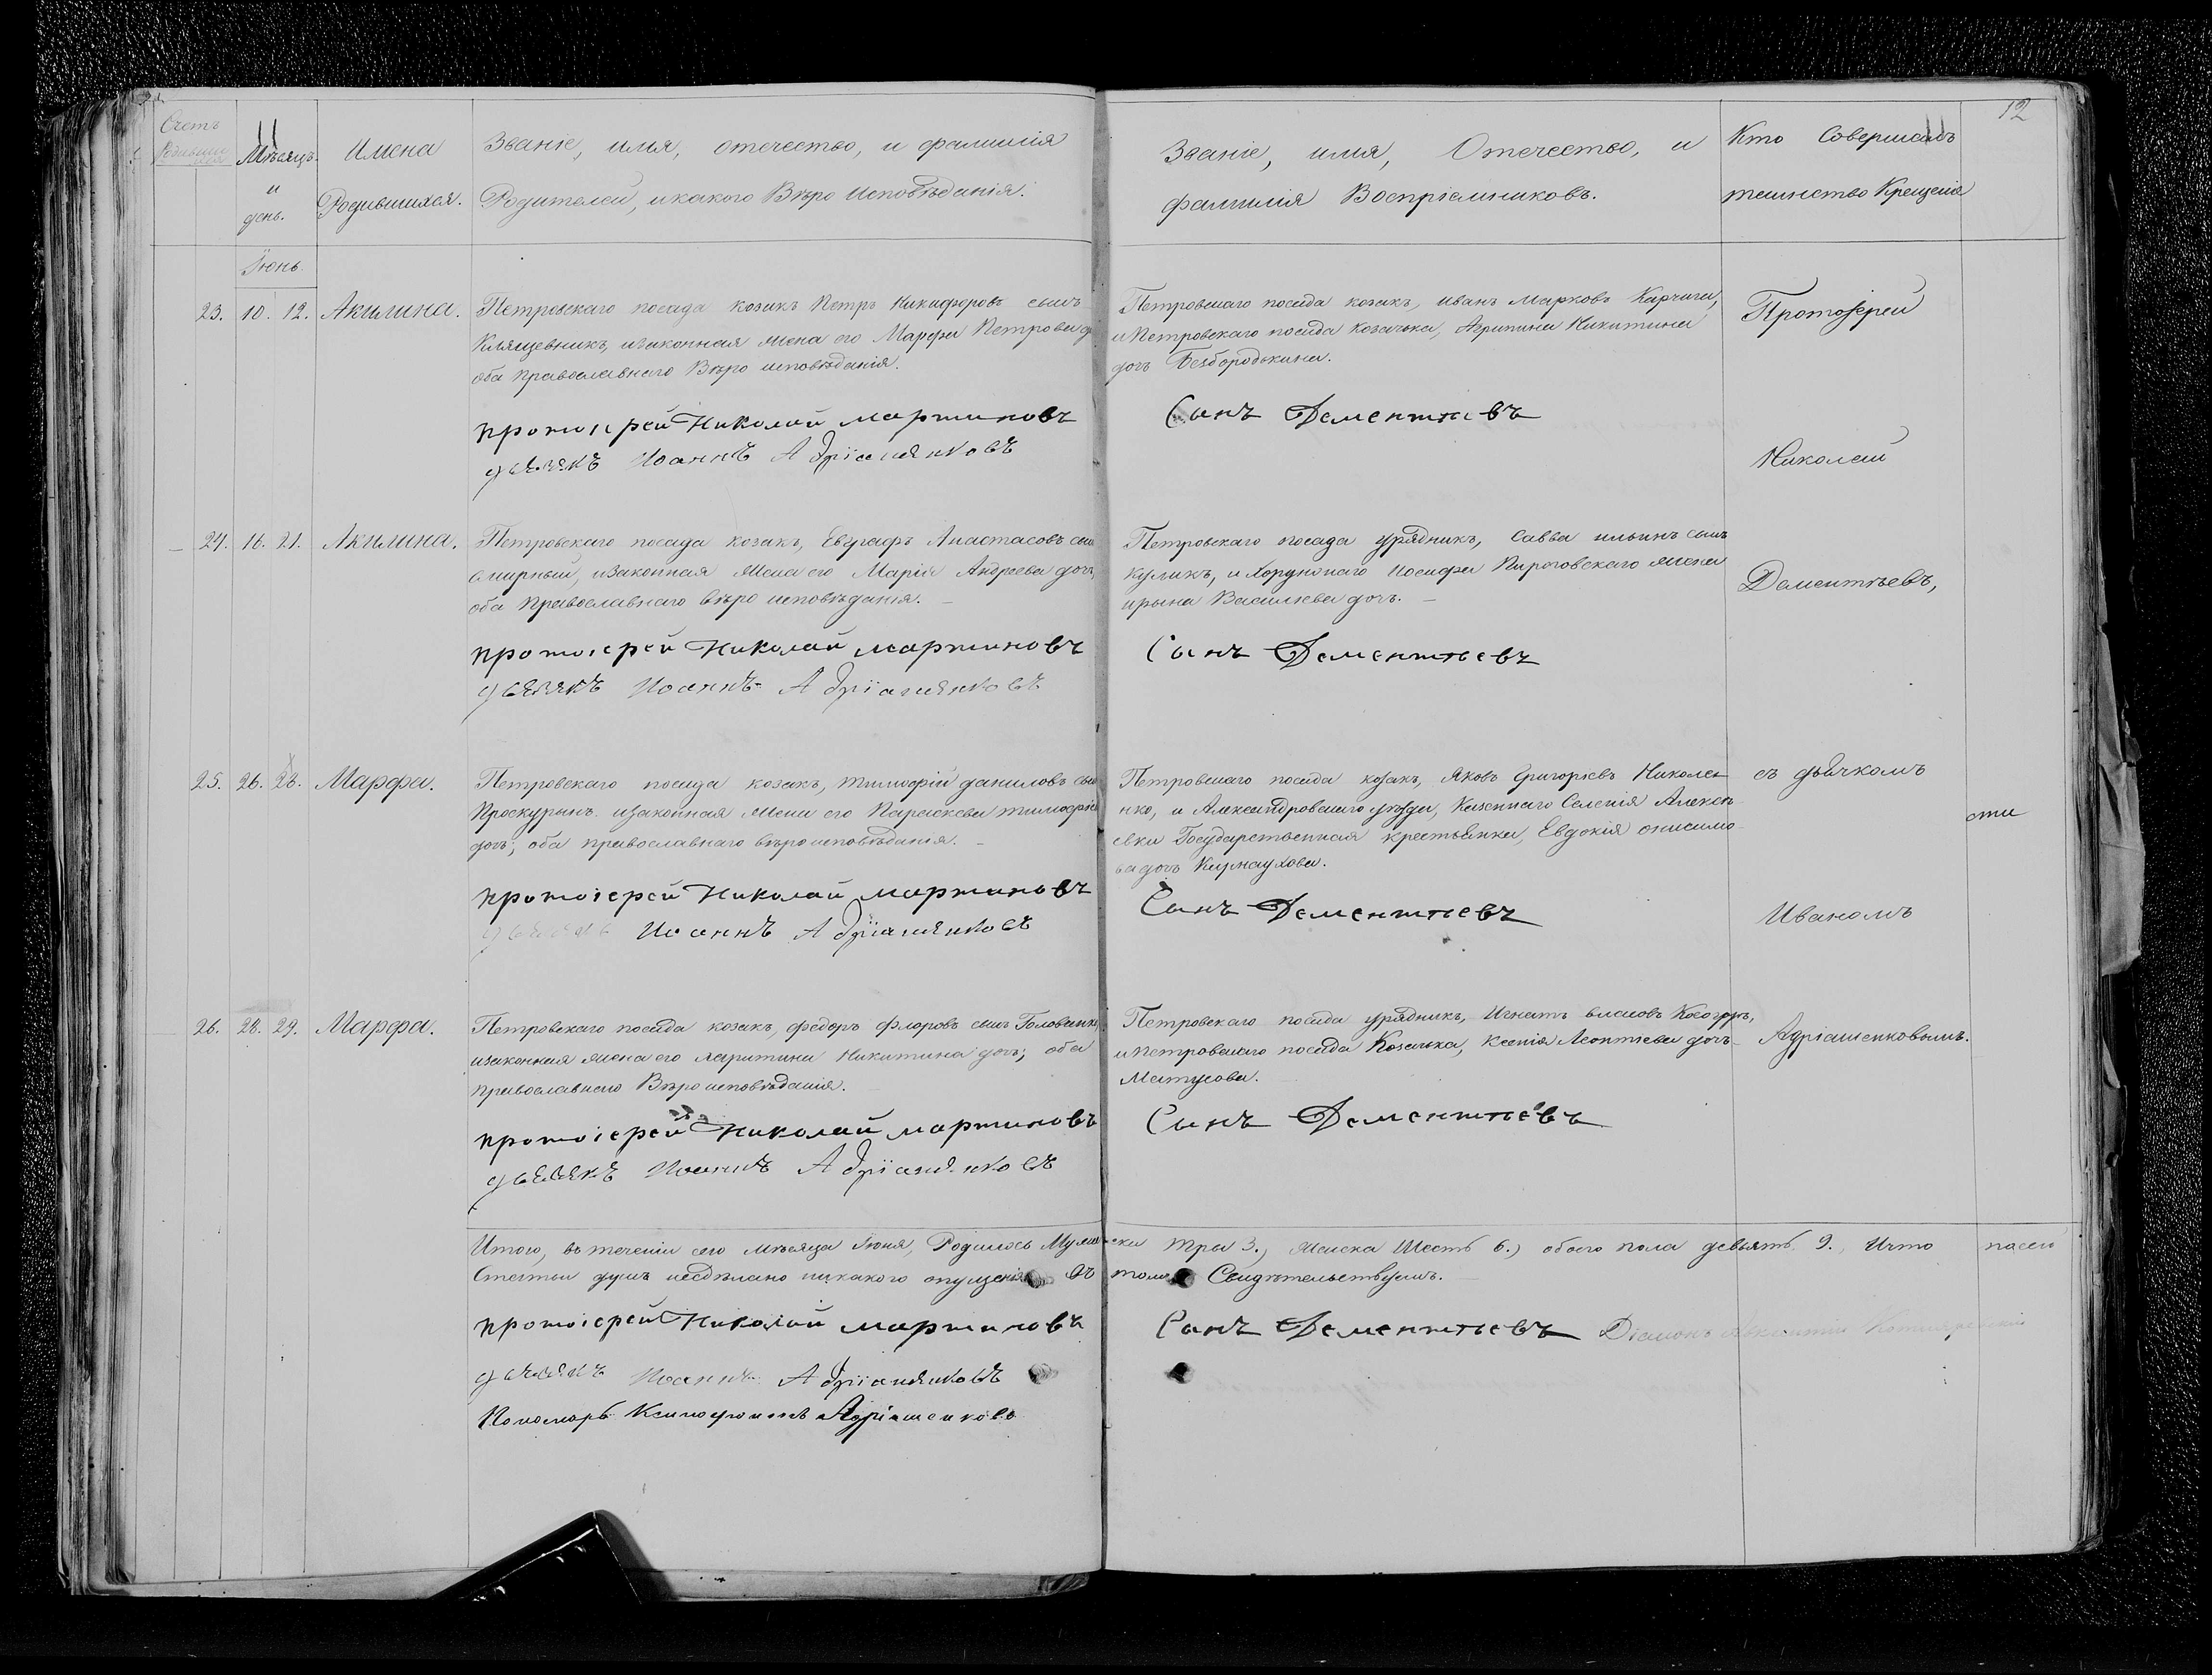 12
Счетъ
Родившихся
Мѣсяцъ
и
день.
Имена
Родившихся.
Званіе, имя, отечество, и фамилія
Родителей, и какого Вѣро Исповѣданія.
Званіе, имя, Отечество, и
фамилія Воспріемниковъ.
Кто Совершалъ
таинство Крещенія
Іюнь
23. 10. 12. Акилина.
Петровскаго посада козакъ Петръ Никифоровъ сынъ
Клящевникъ, изаконная жена его Марфа Петрова
оба Православнаго Вѣро исповѣданія.
протоіерей Николай Мартиновъ
дьячокъ Иоаннъ Адріашенковъ
Петровскаго посада козакъ, Иванъ Марковъ Карчига,
и Петровскаго посада козачька, Агрипина Никитина
дочь Безбородькина.
Сынъ Дементіевъ
Протоіерей
Николай
24. 16. 21. Акилина.
Петровскаго посада козакъ, Евграфъ Анастасовъ сын
Смирный, изаконная жена его Марія Андреева дочь,
оба Православнаго вѣро исповѣданія.
протоіерей Николай Мартиновъ
дьячокъ Иоаннъ Адріашенковъ
Петровскаго посада урядникъ, Савва ильинъ сынъ
Куликъ, и Хорунжаго Иосифа Пироговскаго жена
ирына Васильева дочь.
Сынъ Дементьевъ
Дементьевъ,
25. 26. 28. Марфа.
Петровскаго посада козакъ, тимофій даниловъ сын
Проскурынъ изаконная жена его Параскева тимофіе
дочь; оба православнаго вѣро исповѣданія.
протоіерей Николай Мартиновъ
Иоаннъ Адріашенковъ
Петровскаго посада козакъ, Яковъ Григоріевъ Николае
нко, и Александровскаго уѣзда, Казеннаго Селенія Алексѣ
евки Государственная крестьянка, Евдокія онисимо
ва дочь Карнаухова.
Сынъ Дементіевъ
съ дьячкомъ
сти
Иваномъ
26. 28. 29. Марфа.
Петровскаго посада козакъ, федоръ флоровъ сынъ Головинъ
изаконная жена его Маритина Никитина дочь; оба
православнаго Вѣро исповѣданія.
протоіерей Николай Мартиновъ
дьячокъ Иоаннъ Адріашенковъ
Петровскаго посада урядникъ, Игнатъ власовъ
и Петровскаго посада Козачька, Ксенія Леонтіева дочь
Матусова.
Сынъ Дементьевъ
Адріашенковымъ.
Итого, въ теченіи сего мѣсяца Іюня, Родилось Мужески три 3., Женска Шесть 6.) обоего пола девять 9., Ичто посей
Статьи душъ несдѣлано никакого опущенія въ томъ Свидѣтельствуемъ.
протоіерей Николай Мартиновъ
Сынъ Дементьевъ Діаконъ
дьячокъ Иоаннъ Адріашенковъ
Пономарь Ксинофонтъ Адріашенково